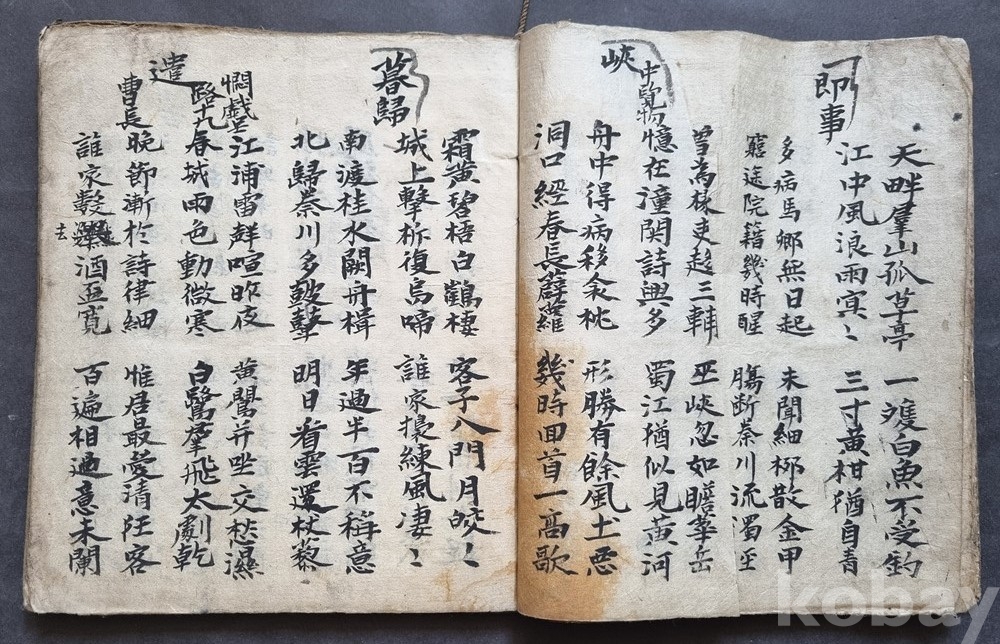 即事
天畔羣山孤草亭
江中風浪雨冥〻
一雙白魚不受釣
三寸黃柑猶自青
多病馬鄉無日起
窮途院籍幾時醒
未聞細柳散金甲
膓斷秦川流濁至
峽中覽物
曽為掾吏趍三輔
憶在潼関詩興多
巫峽忽如瞻華岳
蜀江猶似見黃河
舟中得病移衾枕
洞口經春長薜蘿
形勝有餘風土悪
幾時回首一高歌
暮歸
霜黃碧梧白鶴棲
城上擊柝復烏啼
客子入門月皎〻
誰家擣練風凄〻
南渡桂水闕舟楫
北歸秦川多皷鼙
年過半百不稱意
明日看雲還杖藜
遣憫戱呈路十九曹長
江浦雷聲喧昨夜
春城雨色動微寒
黃鸎并坐交愁濕
白鷺羣飛太劇乾
晚節漸於詩律細
誰家數去酒盃寬
惟君最愛清狂客
百遍相過意未闌
kobay